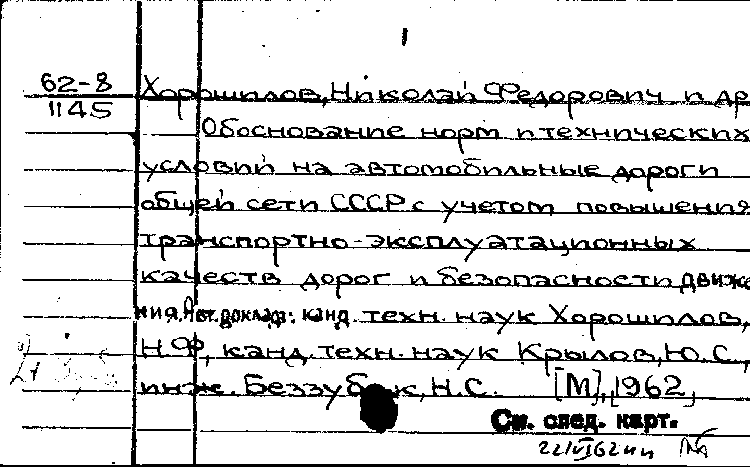 1
62-8
1145
Хорошилов, Николай Федорович и др
Обоснование норм и технических
условий на автомобильные дороги
общей сети СССР с учетом повышения
транспортно-эксплуатационных
качеств дорог и безопасности движе
ния. Авт. доклада: канд. техн. наук Хорошилов,
Н.Ф, канд. техн. наук Крылов, Ю.С,
инж. Беззубик, Н.С. [М], [1962]
См. след. карт.
22/VI62